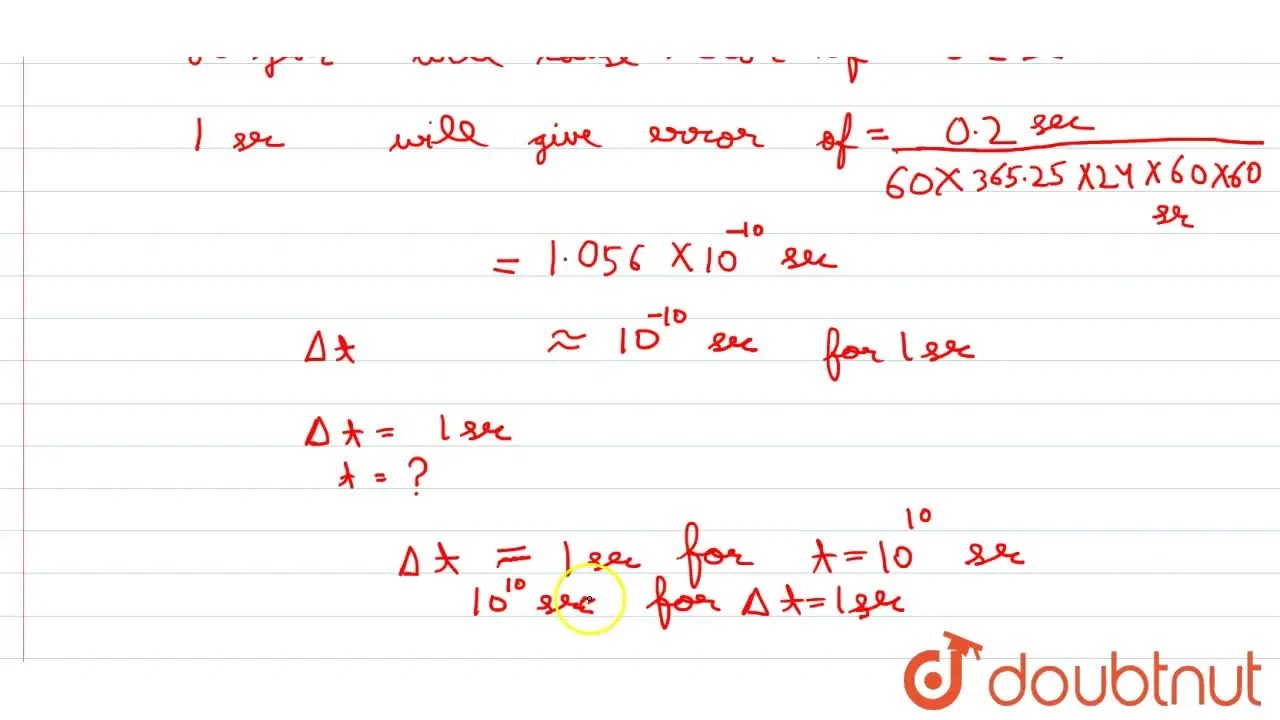 1 sec will give error of = 0.2 sec
60 X 365.25 X 24 X 60 X 60
sec
= 1.056 X 10^-10 sec
Δt ≈ 10^-10 sec for 1 sec
Δt = 1 sec
t = ?
Δt = 1 sec for t = 10^10 sec
10^10 sec for Δt = 1 sec
doubtnut